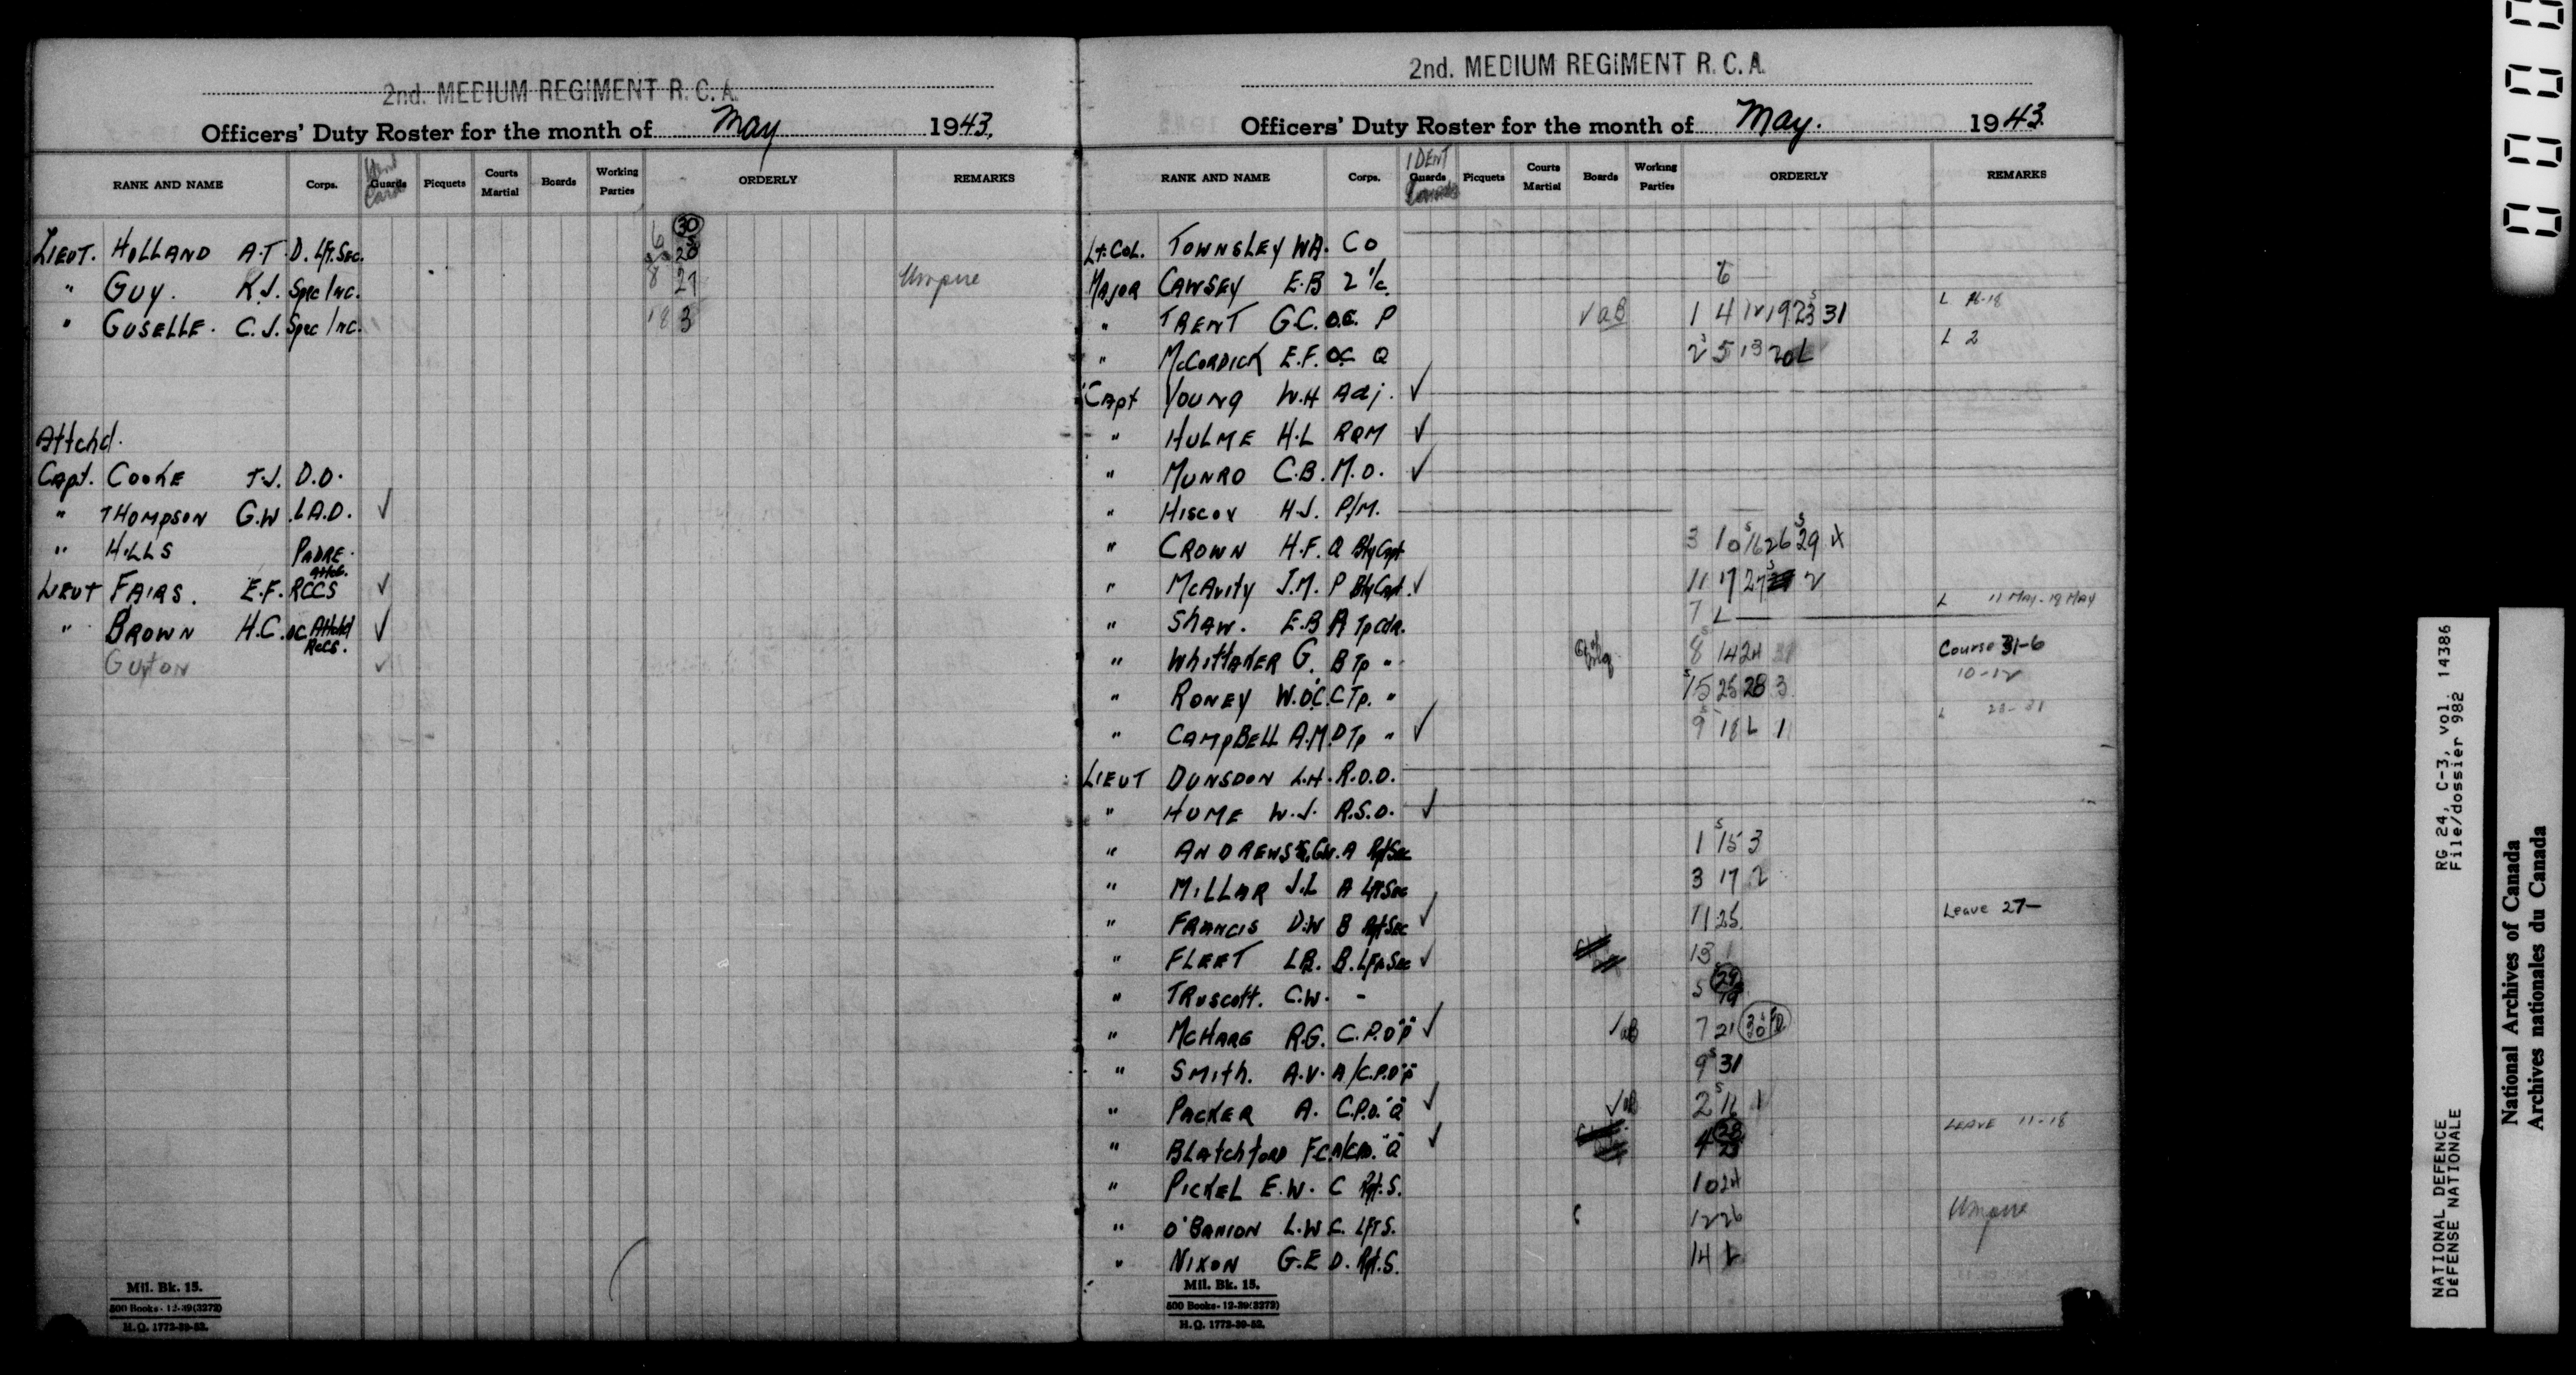 2nd. MEDIUM REGIMENT R. C. A.
Officers' Duty Roster for the month of May 1943.
RANK AND NAME Corps. Guards Picquets Courts Martial Boards Working Parties ORDERLY REMARKS
LIEUT. HOLLAND A.T. D. Lft. Sec. 6 30 20
" GUY. K.J. Spec Inc. 8 27 Umpire
" GUSELLE. C.J. Spec Inc. 18 3
Attchd.
Capt. COOKE T.J. D.O.
" THOMPSON G.W. L.A.D. ✓
" HILLS PADRE.
LIEUT FAIRS. E.F. RCCS ✓
" BROWN H.C. OC Attchd RCCS. ✓
GUYTON ✓
Mil. Bk. 15.
500 Books- 12-39(3272)
H.Q. 1772-39-52.
2nd. MEDIUM REGIMENT R. C. A.
Officers' Duty Roster for the month of May. 1943.
IDENT
RANK AND NAME Corps. Guards Picquets Courts Martial Boards Working Parties ORDERLY REMARKS
Lt. COL. TOWNSLEY W.A. CO
MAJOR CAWSEY E.B 2 i/c 6
" TRENT G.C. O.C. P 1 4 12 19 23 31 L
" McCORDICK E.F. OC Q 2 5 13 20 L L 2
Capt YOUNG W.H Adj. ✓
" HULME H.L RQM ✓
" MUNRO C.B. M.O. ✓
" HISCOX H.J. P/M.
" CROWN H.F. Q Bty Capt 3 10 16 26 29
" McAvity J.M. P Bty Capt. ✓ 11 17 27 2
" SHAW. E.B A Tp Cdr. 7 L L 11 MAY-19 MAY
" WHITTAKER G. B Tp " 8 14 24 Course 31-6
" RONEY W.O'C. C Tp. " 15 25 28 3 10-12
" CAMPBELL A.M. D Tp " ✓ 9 18 L 1 L
LIEUT DUNSDON L.H. R.O.O.
" HUME W.J. R.S.O. ✓
" ANDREWS G.W. A Rgt Sec 1 15 3
" MILLAR J.L A Lft Sec 3 17 2
" FRANCIS D.W B Rgt Sec ✓ 11 25 Leave 27-
" FLEET L.B. B. Lft Sec ✓ 13
" TRUSCOTT. C.W. - 5 29 19
" McHARG R.G. C.P.O "P" ✓ 7 21 30
" SMITH. A.V. A/C.P.O "P" 9 31
" PACKER A. C.P.O. "Q" ✓ 2 16 1
" BLATCHFORD F.C. A/CPO. "Q" ✓ 4 LEAVE 11-18
" PICKEL E.W. C Rgt. S. 10 24
" O'BANION L.W C. Lft S. 12 26 Umpire
" NIXON G.E D. Rgt. S. 14
Mil. Bk. 15.
500 Books- 12-39(3272)
H.Q. 1772-39-52.
RG 24, C-3, vol. 14386
File/dossier 982
NATIONAL DEFENCE
DÉFENSE NATIONALE
National Archives of Canada
Archives nationales du Canada